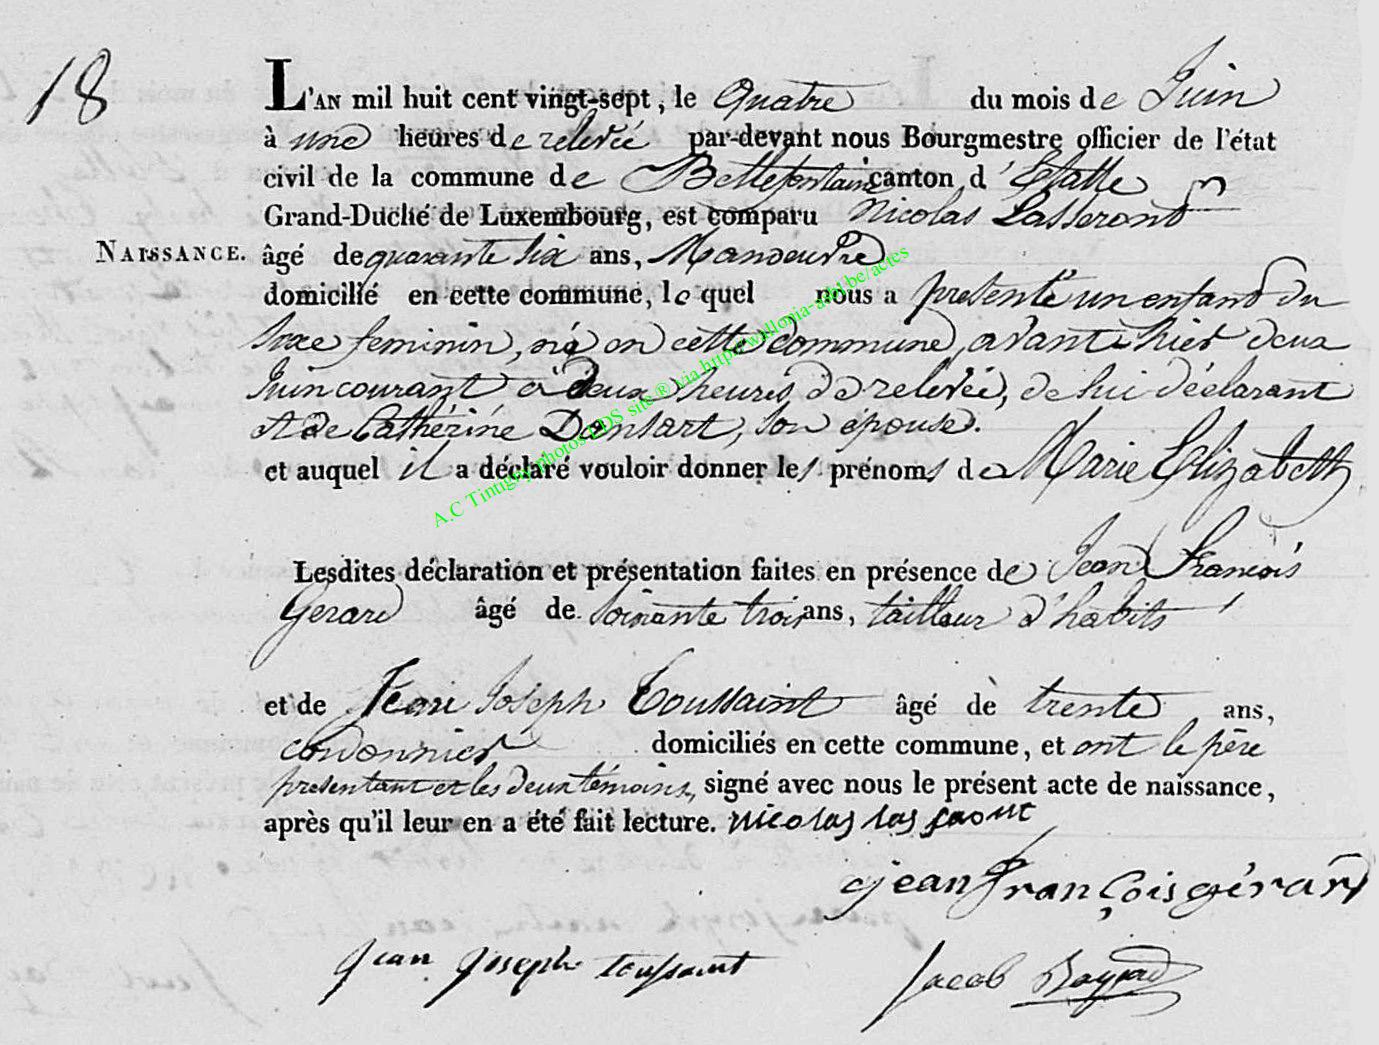 18
L'AN mil huit cent vingt-sept, le quatre du mois de Juin
à une heures de relevée par-devant nous Bourgmestre officier de l'état
civil de la commune de Bellefontaine canton d'Etalle
Grand-Duché de Luxembourg, est comparu Nicolas Lasseront
NAISSANCE. âgé de quarante six ans, Manoeuvre
domicilié en cette commune, le quel nous a présenté un enfant du
sexe feminin, né en cette commune, avant hier deux
Juin courant à deux heures de relevée, de lui déclarant
et de Cathérine Dansart, son epouse.
et auquel il a déclaré vouloir donner les prénoms de Marie Elizabeth
Lesdites déclaration et présentation faites en présence de Jean François
Gerard âgé de soixante trois ans, tailleur d'habits
et de Jean Joseph Toussaint âgé de trente ans,
cordonnier domiciliés en cette commune, et ont le père
presentant et les deux témoins, signé avec nous le présent acte de naissance,
après qu'il leur en a été fait lecture. nicolas las
jean françois gérard
jean joseph toussaint Jacob
A.C Tintigny photos LDS site ® via http://wallonia-asbl.be/actes